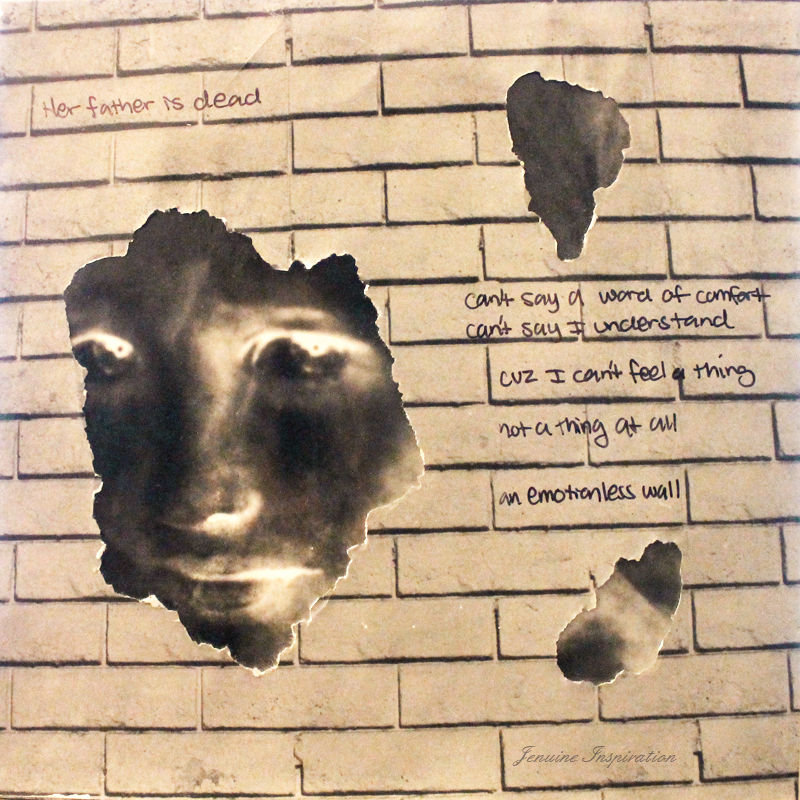 Her father is dead
can't say a word of comfort
can't say I understand
cuz I can't feel a thing
not a thing at all
an emotionless wall
Jenuine Inspiration